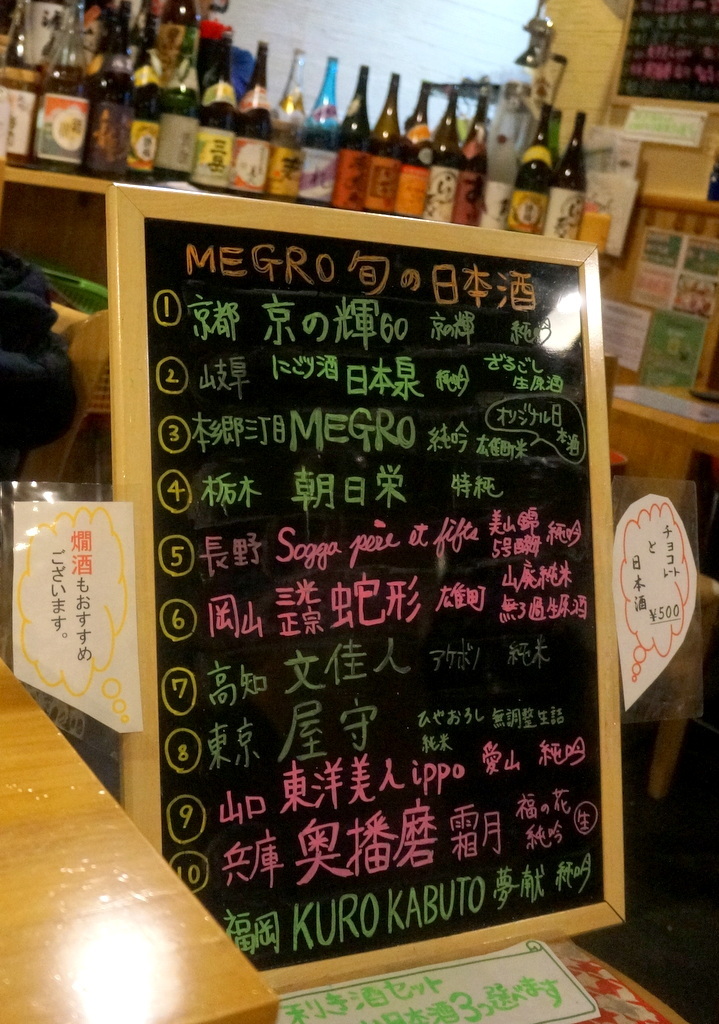 MEGRO 旬の日本酒
① 京都 京の輝60 京の輝 純吟
② 岐阜 にごり酒 日本泉 純吟 ざるごし 生原酒
③ 本郷三丁目 MEGRO 純吟 雄町米 オリジナル日本酒
④ 栃木 朝日栄 特純
⑤ 長野 Sogga père et fils 美山錦 5号酵母 純吟
⑥ 岡山 三光正宗 蛇形 雄町 山廃純米 無ろ過生原酒
⑦ 高知 文佳人 アケボノ 純米
⑧ 東京 屋守 ひやおろし 純米 無調整生詰
⑨ 山口 東洋美人 ippo 愛山 純吟
⑩ 兵庫 奥播磨 霜月 福の花 純吟 生
福岡 KURO KABUTO 夢献 純吟
燗酒もおすすめ
ございます。
チョコレート
と
日本酒
¥500
利き酒セット
日本酒3つ選べます
三岳